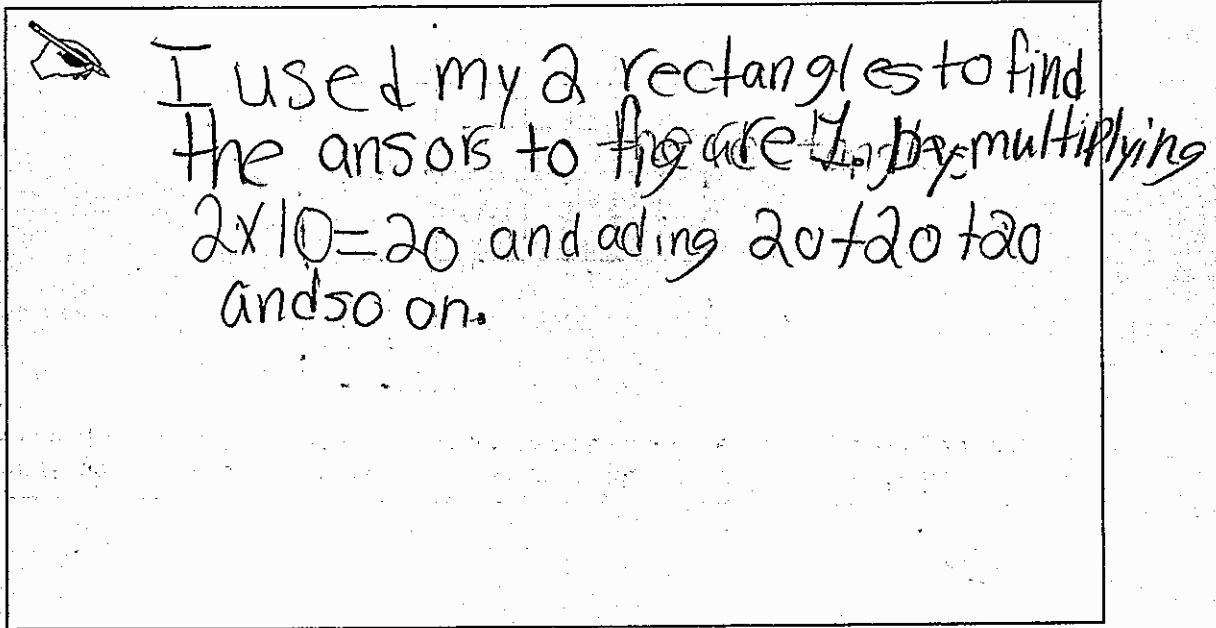 I used my 2 rectangles to find
the ansors to figure 1. by multiplying
2x10=20 and ading 20+20+20
and so on.